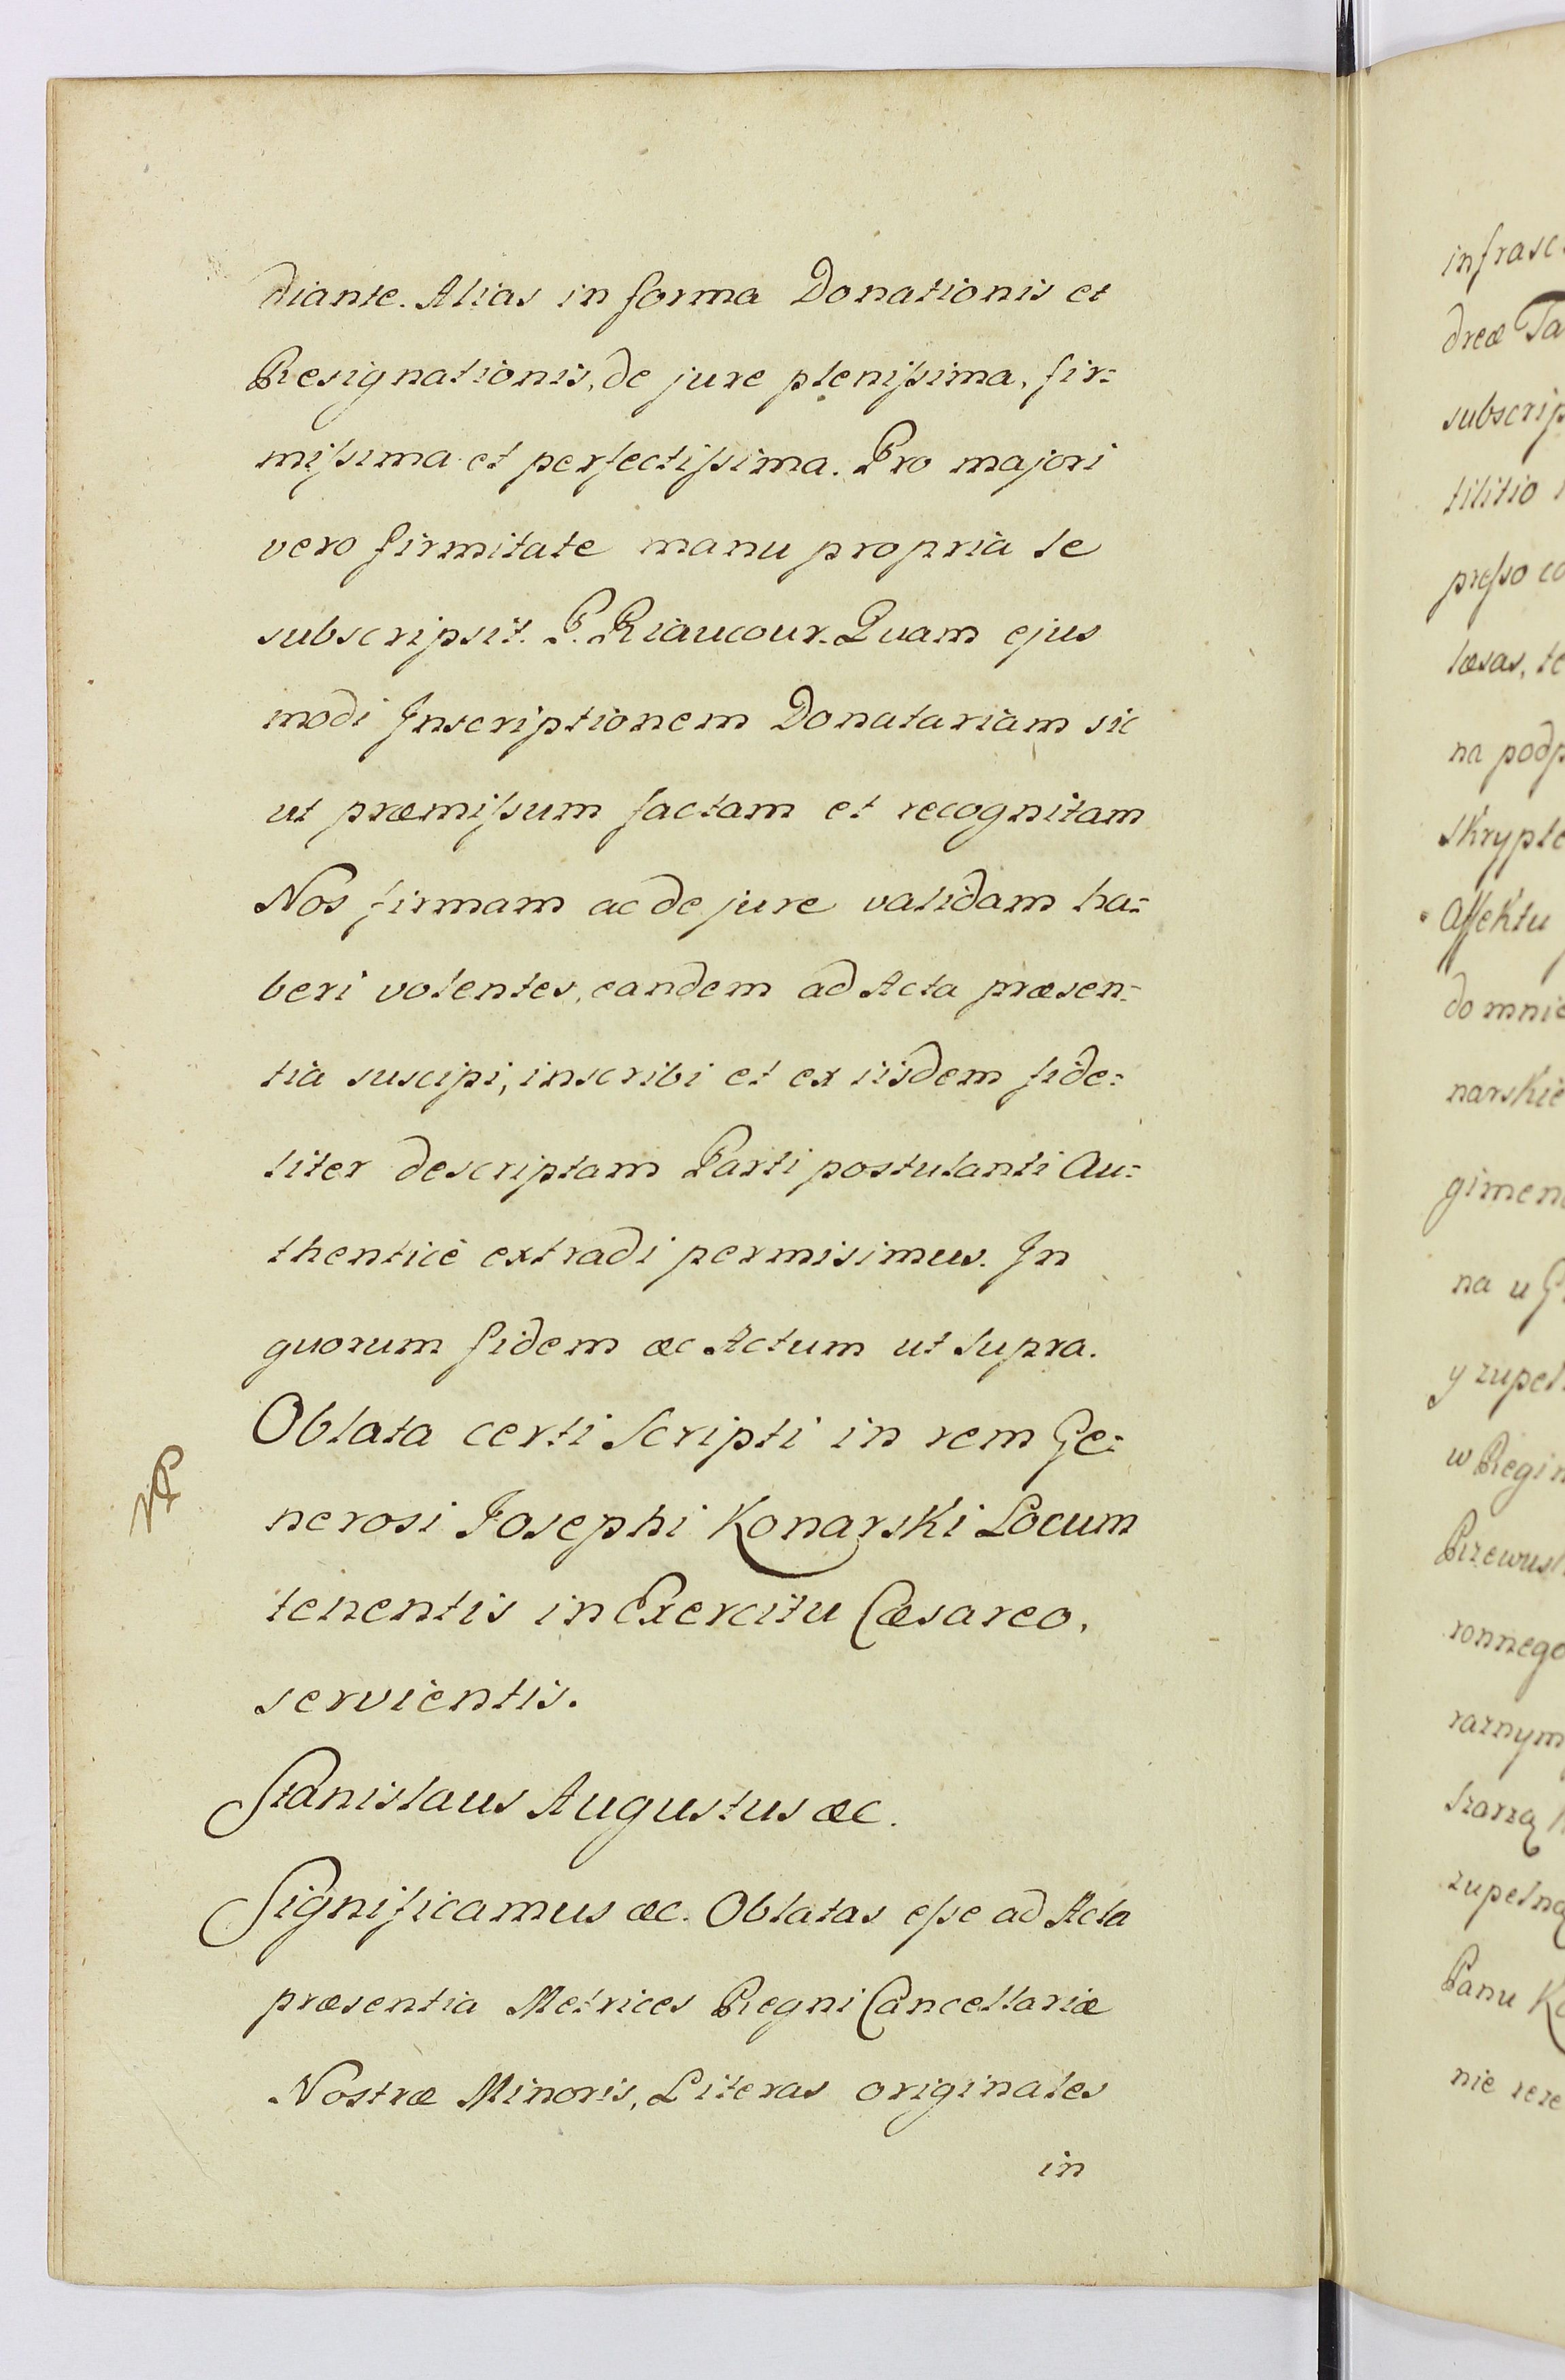 diante. Alias in forma Donationis et
Resignationis, de jure plenissima, fir=
missima et perfectissima. Pro majori
vero firmitate manu propria se
subscripsit. P. Riaucour. Quam ejus
modi Inscriptionem Donatariam sic
ut præmissum factam et recognitam
Nos firmam ac de jure validam ha=
beri volentes, eandem ad Acta præsen=
tia suscipi, inscribi et ex iisdem fide=
liter descriptam Parti postulanti Au=
thenticè extradi permisimus. In
quorum fidem æc Actum ut supra.
Oblata certi Scripti in rem Ge=
nerosi Josephi Konarski Locum
tenentis in Exercitu Cæsareo,
servientis.
Stanislaus Augustus æc.
Significamus æc. Oblatas esse ad Acta
præsentia Metrices Regni Cancellariæ
Nostræ Minoris, Literas originales
in
infrasc
dreæ Ta
subscrip
tilitio
presso co
læsas, te
na podp
Skrypte
Affektu
do mnie
narskie
gimen
na u G
y zupeł
w Regim
Rzewus
ronnego
raznym
Szarzą
zupełną
Panu Ko
nie zeze